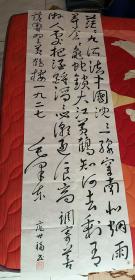 茫茫九派流中國沉沉一线穿南北烟雨
莽苍苍龟蛇锁大江黄鹤知何去剩有
游人处把酒酹滔滔心潮逐浪高调寄菩
萨蛮黄鹤楼一九二七毛泽东